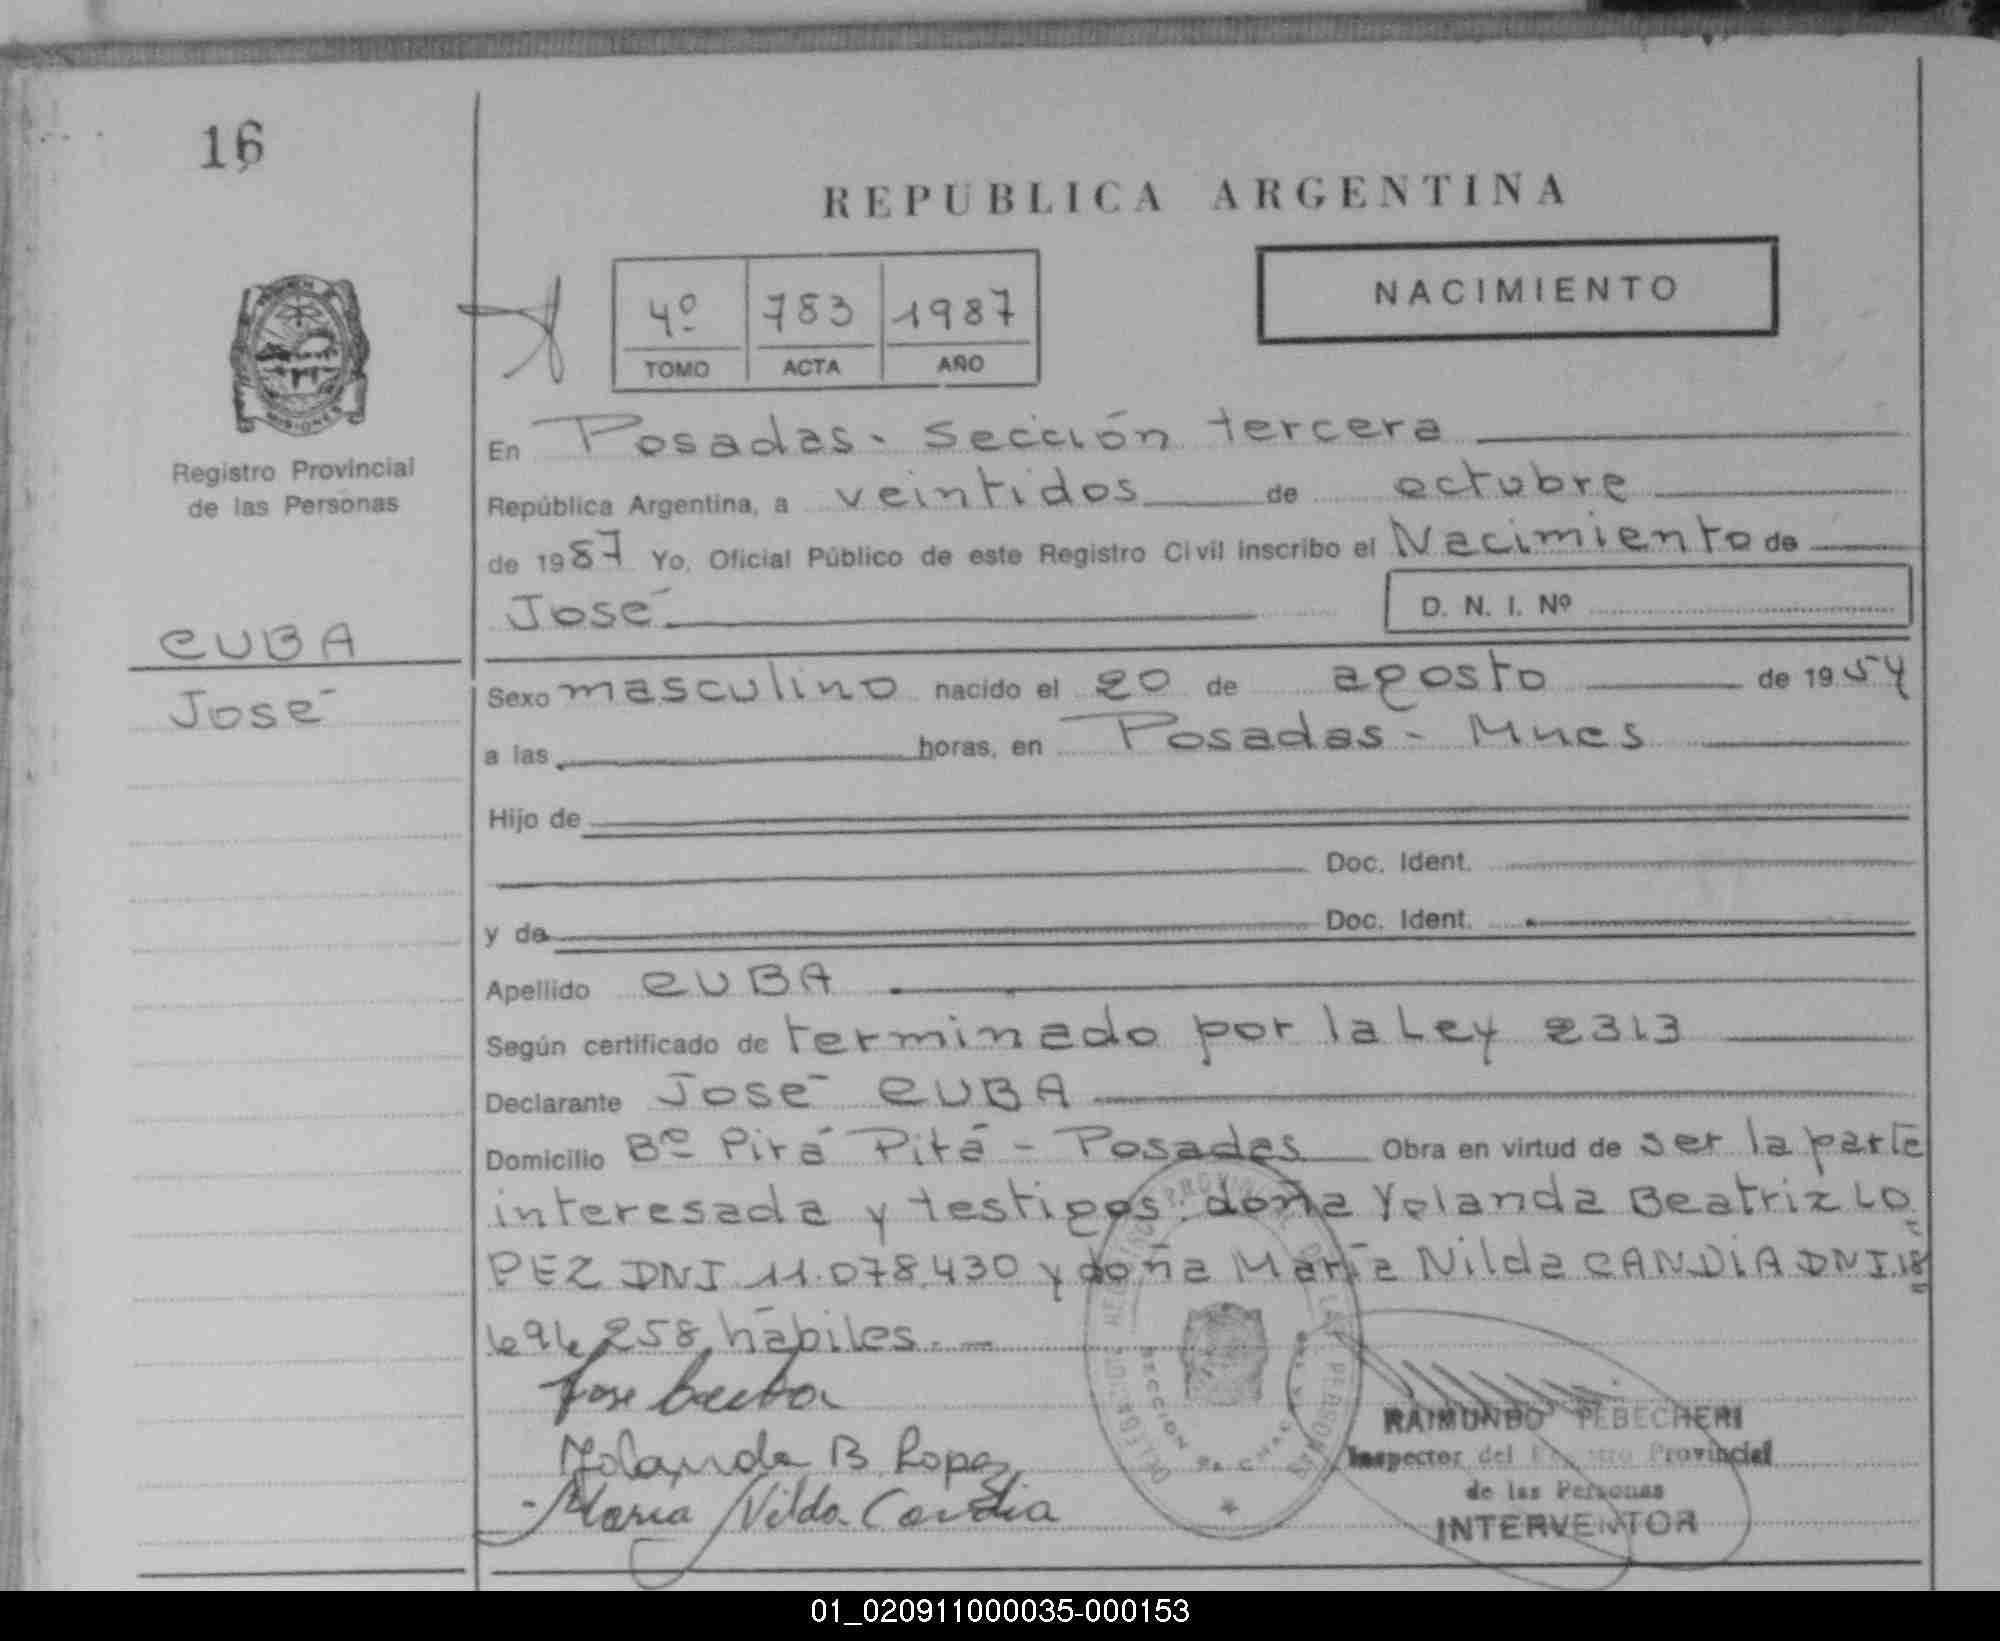 16
REPUBLICA ARGENTINA
NACIMIENTO
4º 783 1987
TOMO ACTA AÑO
MISIONES
Registro Provincial
de las Personas
CUBA
José
En Posadas - Sección tercera
República Argentina, a veintidos de octubre
de 1987 Yo, Oficial Público de este Registro Civil inscribo el Nacimiento de
José D. N. I. Nº
Sexo masculino nacido el 20 de agosto de 1954
a las horas, en Posadas - Mnes
Hijo de
Doc. Ident.
y de Doc. Ident.
Apellido CUBA
Según certificado de terminado por la Ley 2313
Declarante José CUBA
Domicilio Bº Pirá Pitá - Posadas Obra en virtud de ser la parte
interesada y testigos: doña Yolanda Beatriz LO
PEZ DNI 11.078.430 y doña María Nilda CANDIA DNI 18
694 258 hábiles. -
Jose Cuba
Yolanda B. Lopez
Maria Nilda Candia
REGISTRO PROVINCIAL DE LAS PERSONAS
SECCION
RAIMUNDO PEBECHERI
Inspector del Registro Provincial
de las Personas
INTERVENTOR
01_020911000035-000153